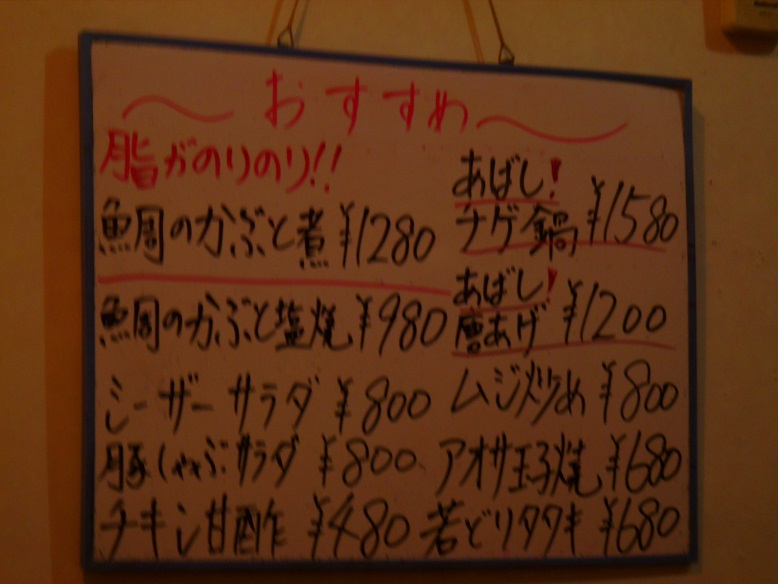 おすすめ
脂がのりのり!!
鯛のかぶと煮 ¥1280
鯛のかぶと塩焼 ¥980
シーザーサラダ ¥800
豚しゃぶサラダ ¥800
チキン甘酢 ¥480
あばし!
チゲ鍋 ¥1580
あばし!
唐あげ ¥1200
ムジ炒め ¥800
アオサ玉子焼 ¥680
若どりタタキ ¥680